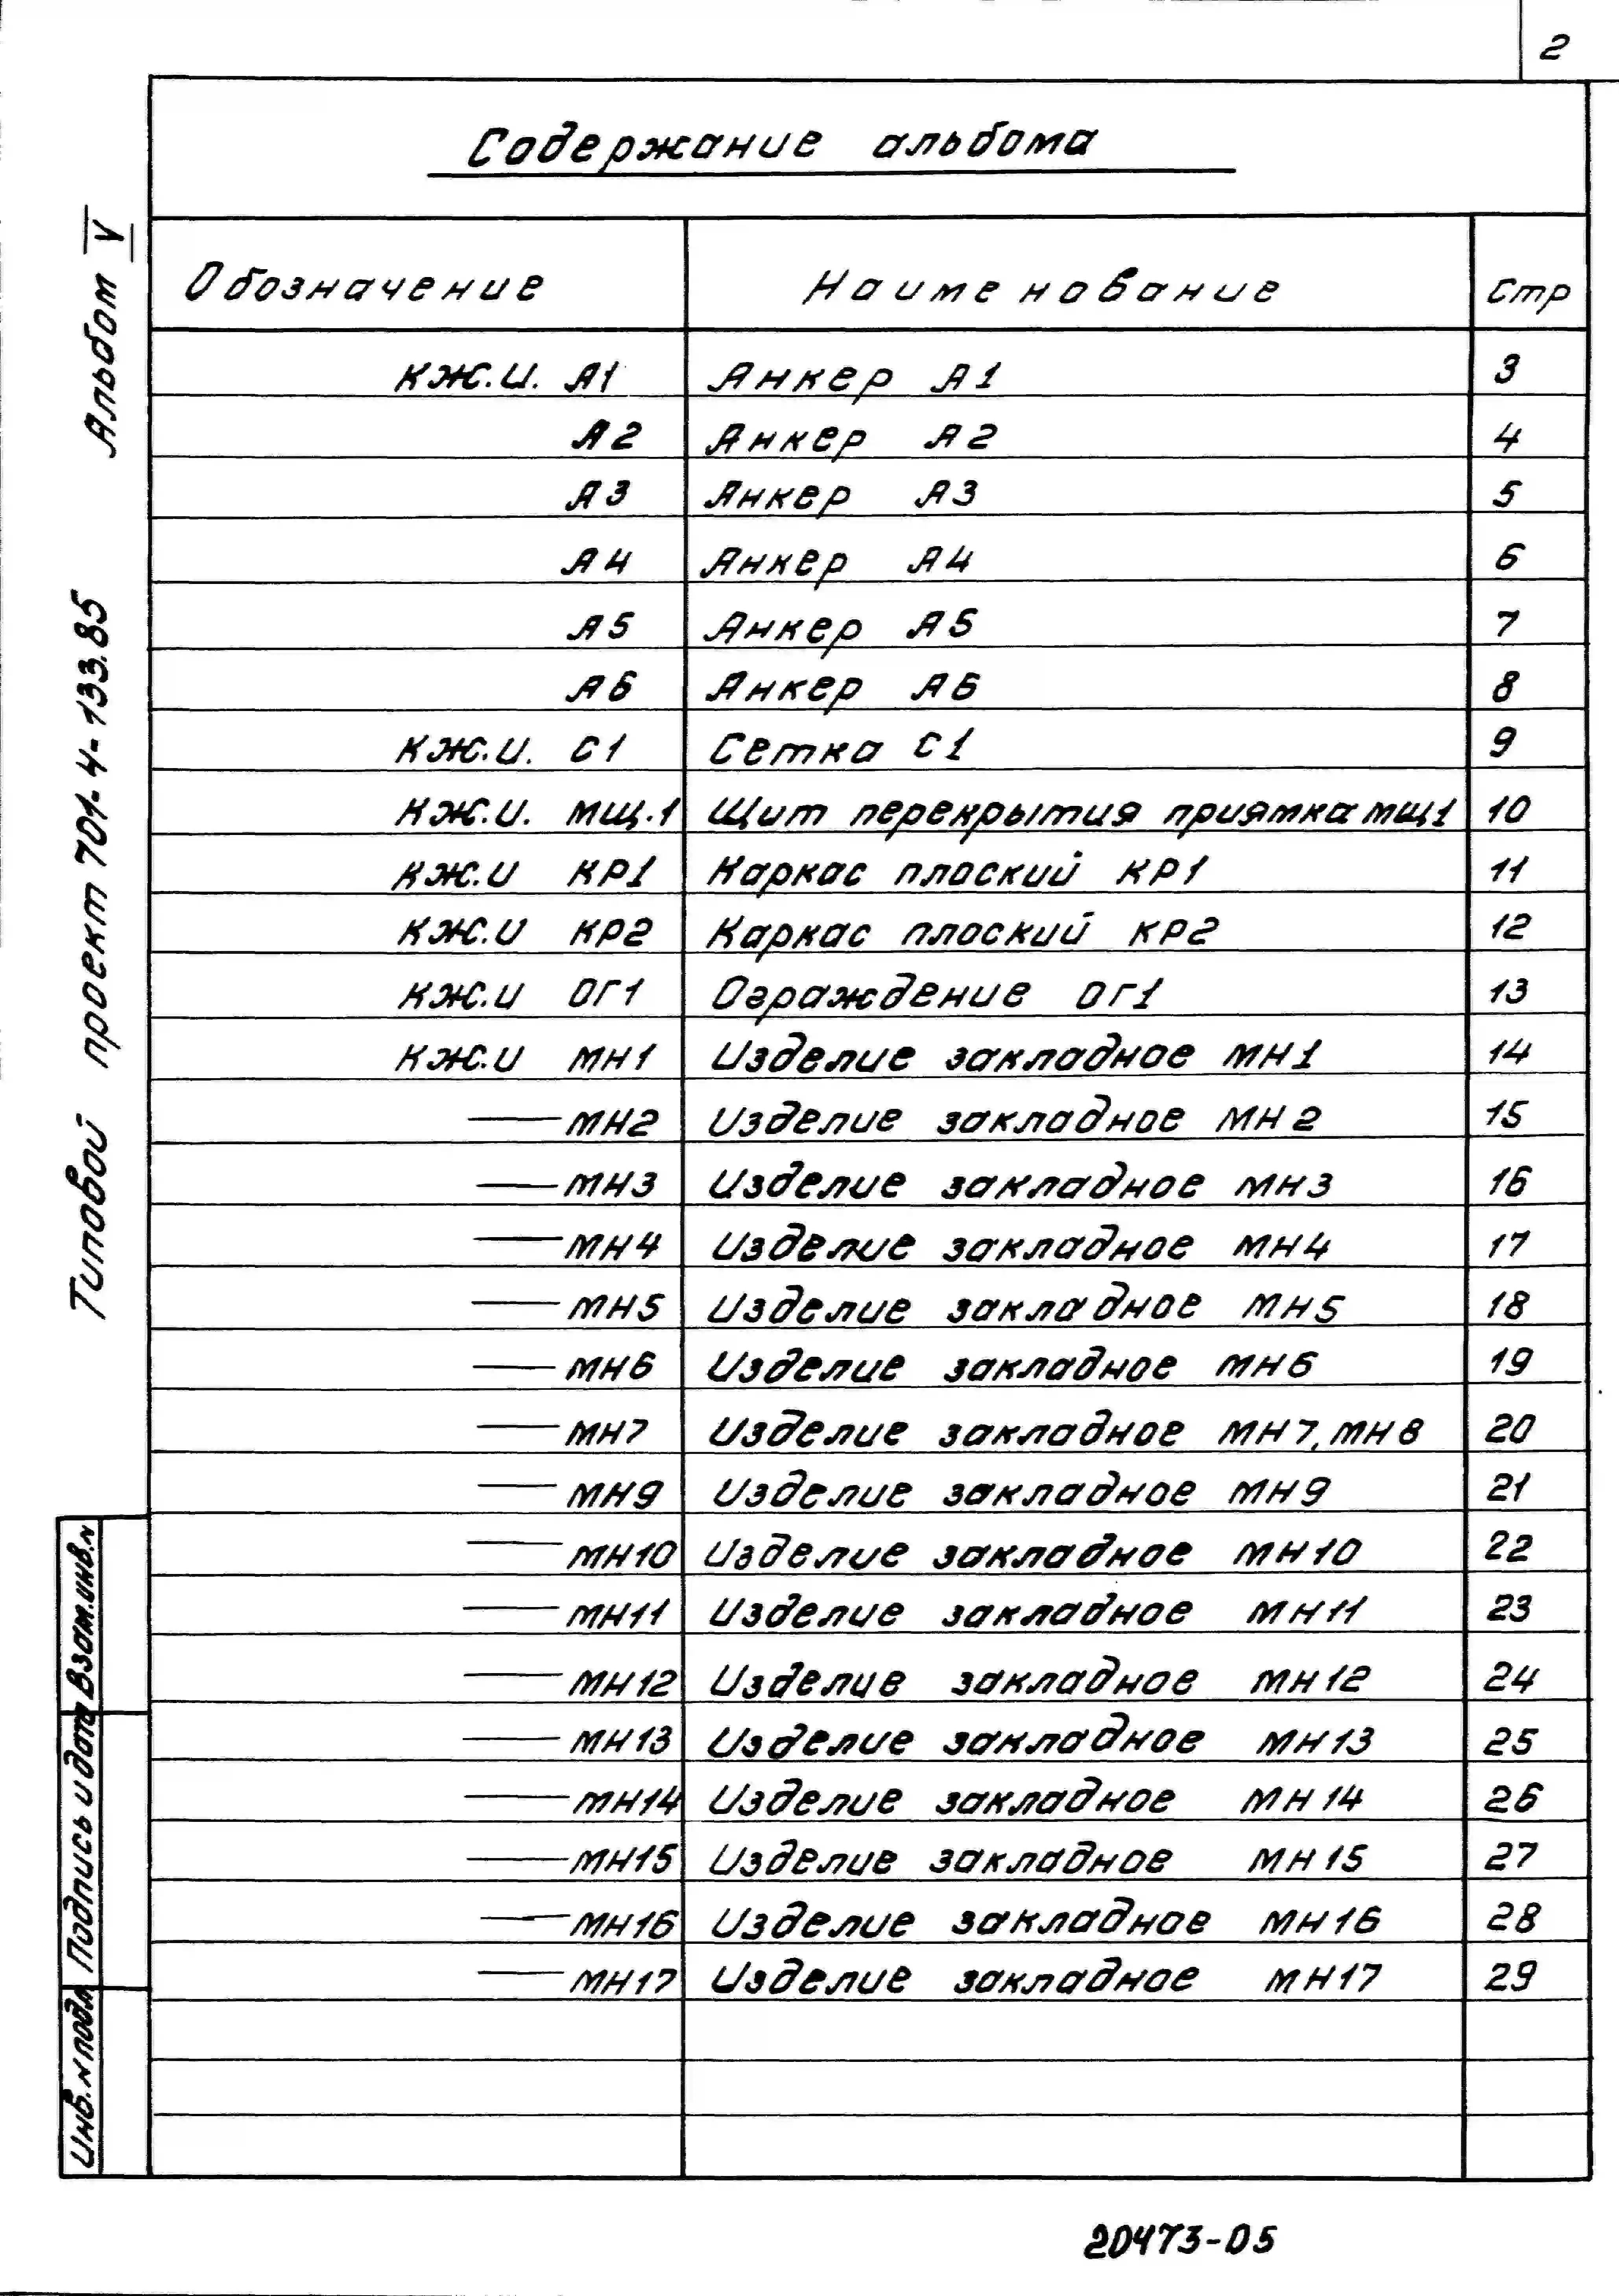 2
Содержание альбома
Обозначение Наименование Стр
КЖ.И. А1 Анкер А1 3
А2 Анкер А2 4
А3 Анкер А3 5
А4 Анкер А4 6
А5 Анкер А5 7
А6 Анкер А6 8
КЖ.И. С1 Сетка С1 9
КЖ.И. МЩ.1 Щит перекрытия приямка МЩ1 10
КЖ.И КР1 Каркас плоский КР1 11
КЖ.И КР2 Каркас плоский КР2 12
КЖ.И ОГ1 Ограждение ОГ1 13
КЖ.И МН1 Изделие закладное МН1 14
—МН2 Изделие закладное МН2 15
—МН3 Изделие закладное МН3 16
—МН4 Изделие закладное МН4 17
—МН5 Изделие закладное МН5 18
—МН6 Изделие закладное МН6 19
—МН7 Изделие закладное МН7, МН8 20
—МН9 Изделие закладное МН9 21
—МН10 Изделие закладное МН10 22
—МН11 Изделие закладное МН11 23
—МН12 Изделие закладное МН12 24
—МН13 Изделие закладное МН13 25
—МН14 Изделие закладное МН14 26
—МН15 Изделие закладное МН15 27
—МН16 Изделие закладное МН16 28
—МН17 Изделие закладное МН17 29
Типовой проект 701-4-133.85 Альбом V
Инв.N подл Подпись и дата Взам.инв.N
20473-05